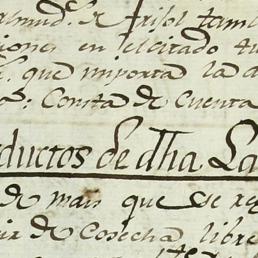 de frisol tam
ciones en el citado tu
que importa la d
Consta de Cuenta
ductos de dha La
de mais que se re
ir de Cosecha libre